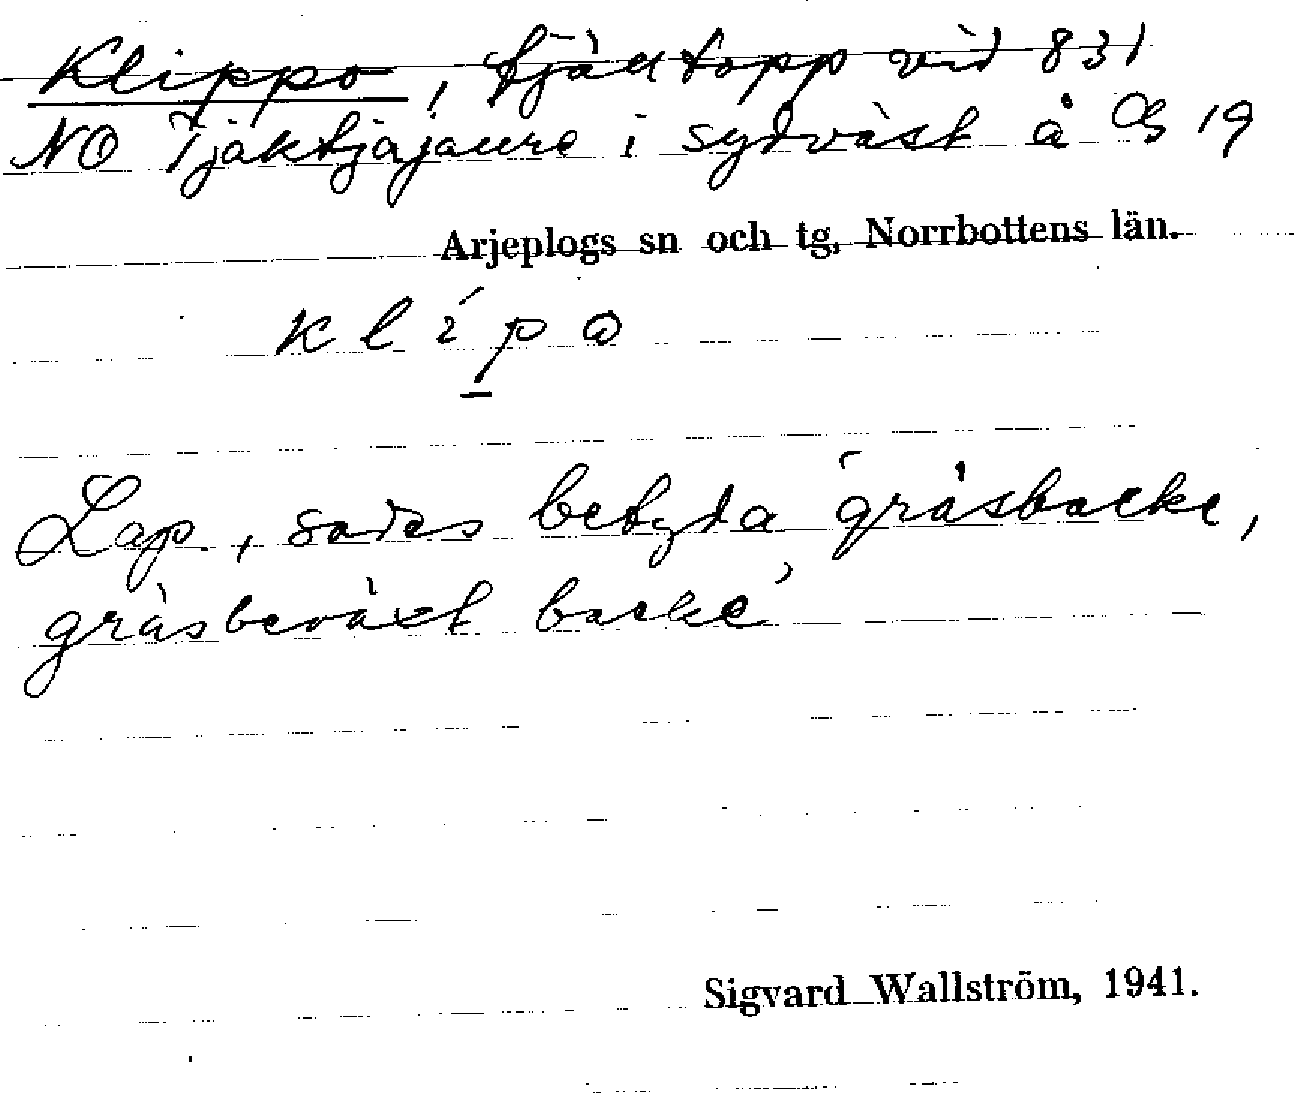 Klippo, fjälltopp vid 831
NO Tjäktjajaure i sydväst å Cg 19
Arjeplogs sn och tg, Norrbottens län.
klípo
Lap, sades betyda 'gräsbacke,
gräsbeväxt backe'
Sigvard Wallström, 1941.